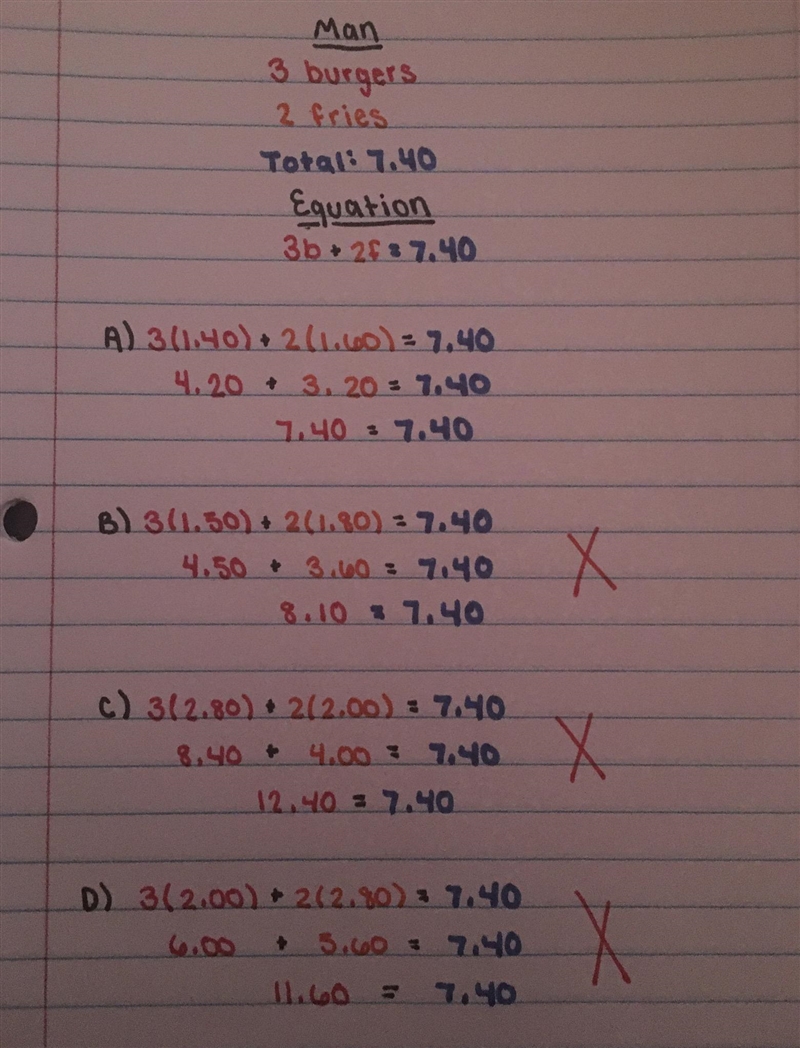 Man
3 burgers
2 fries
Total: 7.40
Equation
3b + 2f = 7.40
A) 3(1.40) + 2(1.60) = 7.40
4.20 + 3.20 = 7.40
7.40 = 7.40
B) 3(1.50) + 2(1.80) = 7.40
4.50 + 3.60 = 7.40
8.10 = 7.40
C) 3(2.80) + 2(2.00) = 7.40
8.40 + 4.00 = 7.40
12.40 = 7.40
D) 3(2.00) + 2(2.80) = 7.40
6.00 + 5.60 = 7.40
11.60 = 7.40